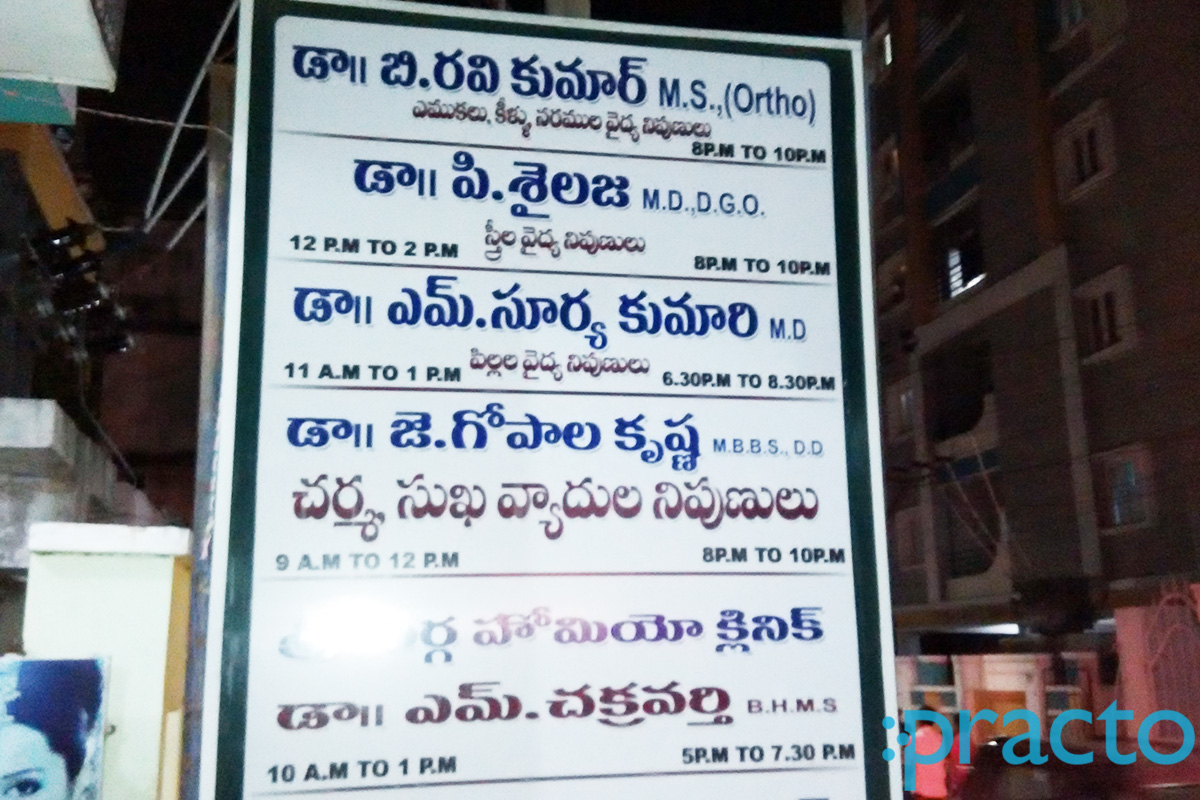 డా॥ బి.రవి కుమార్ M.S.,(Ortho)
ఎముకలు, కీళ్ళు, నరముల వైద్య నిపుణులు
8P.M TO 10P.M
డా॥ పి.శైలజ M.D.,D.G.O.
స్త్రీల వైద్య నిపుణులు
12 P.M TO 2 P.M 8P.M TO 10P.M
డా॥ ఎమ్.సూర్య కుమారి M.D
పిల్లల వైద్య నిపుణులు
11 A.M TO 1 P.M 6.30P.M TO 8.30P.M
డా॥ జె.గోపాల కృష్ణ M.B.B.S., D.D
చర్మ, సుఖ వ్యాదుల నిపుణులు
9 A.M TO 12 P.M 8P.M TO 10P.M
హోమియో క్లినిక్
డా॥ ఎమ్.చక్రవర్తి B.H.M.S
10 A.M TO 1 P.M 5P.M TO 7.30 P.M
practo